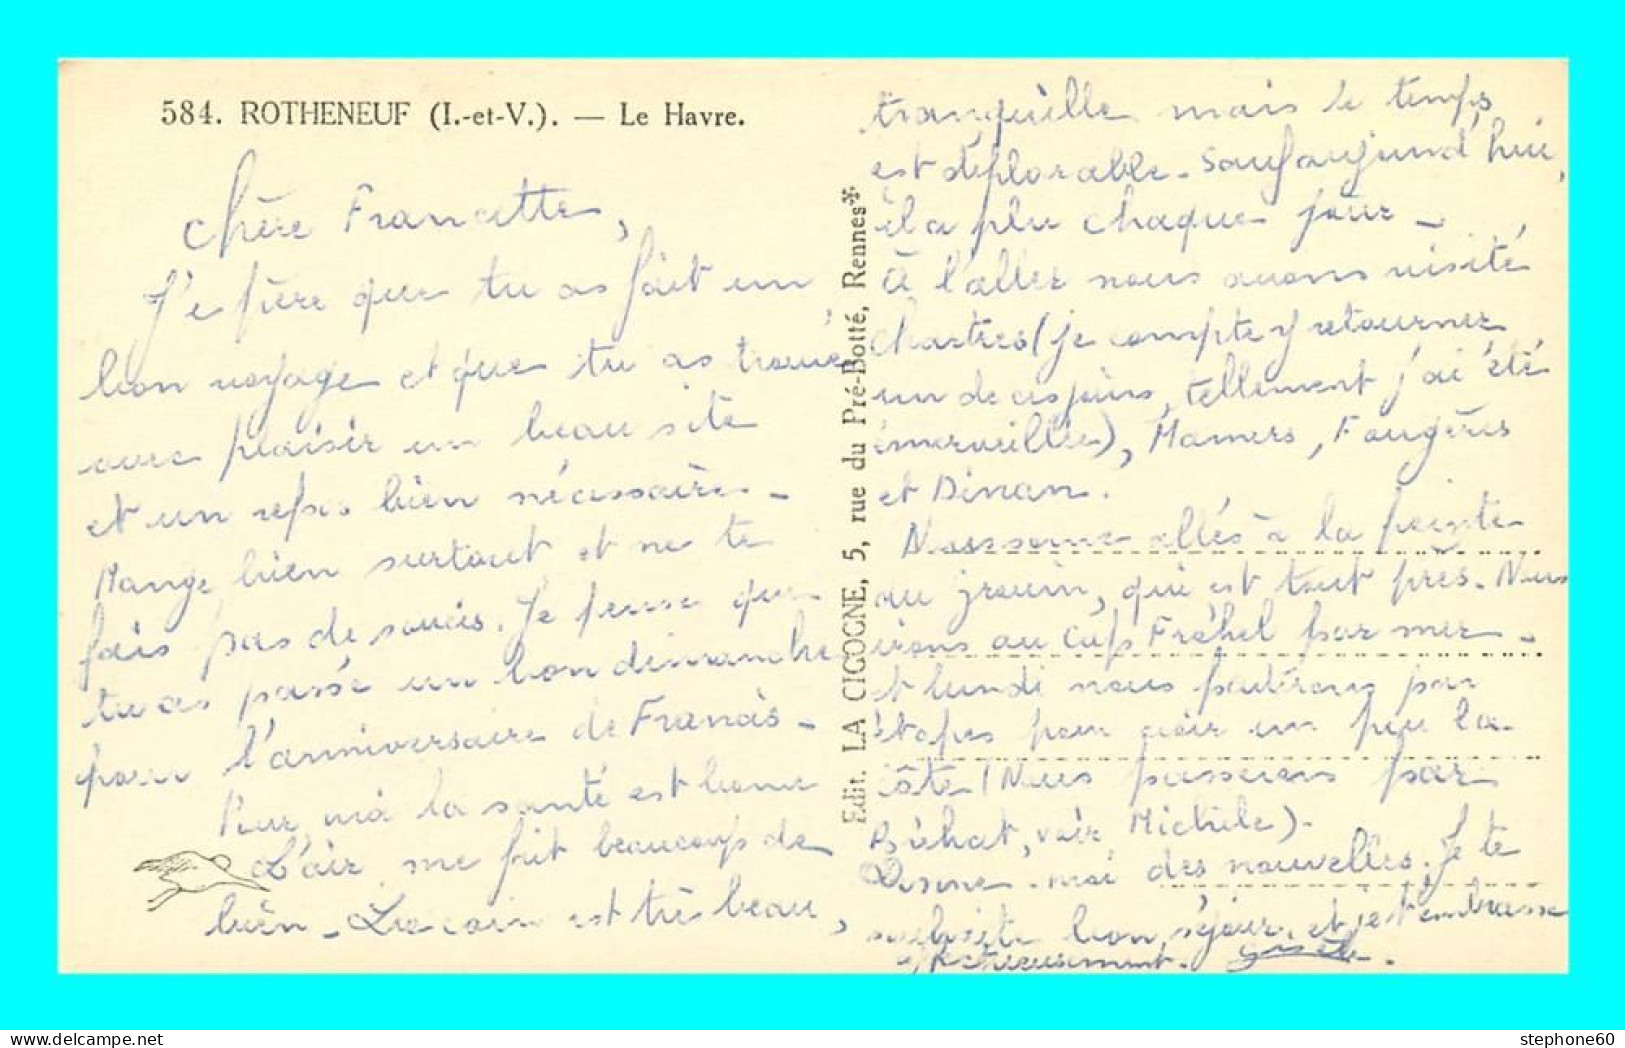 584. ROTHENEUF (I.-et-V.). — Le Havre.
Chère Francette,
J'espère que tu as fait un
bon voyage et que tu as trouvé
avec plaisir un beau site
et un repos bien nécessaire -
Mange bien surtout et ne te
fais pas de soucis. Je pense que
tu as passé un bon dimanche
pour l'anniversaire de François -
Pour moi la santé est bonne
L'air me fait beaucoup de
bien - Le coin est très beau,
Edit. LA CIGOGNE, 5, rue du Pré-Botté, Rennes*
tranquille mais le temps
est déplorable - Sauf aujourd'hui,
il a plu chaque jour -
à l'aller nous avons visité
Chartres (je compte y retourner
un de ces jours, tellement j'ai été
émerveillée), Mamers, Fougères
et Dinan.
Nous sommes allés à la pointe
du grouin, qui est tout près. Nous
irons au Cap Fréhel par mer -
et lundi nous partirons par
étapes pour voir un peu la
côte (Nous passerons par
Bréhat, voir Michèle).
Donne-moi des nouvelles. Je te
souhaite bon séjour, et je t'embrasse
affectueusement.
stephone60
delcampe.net